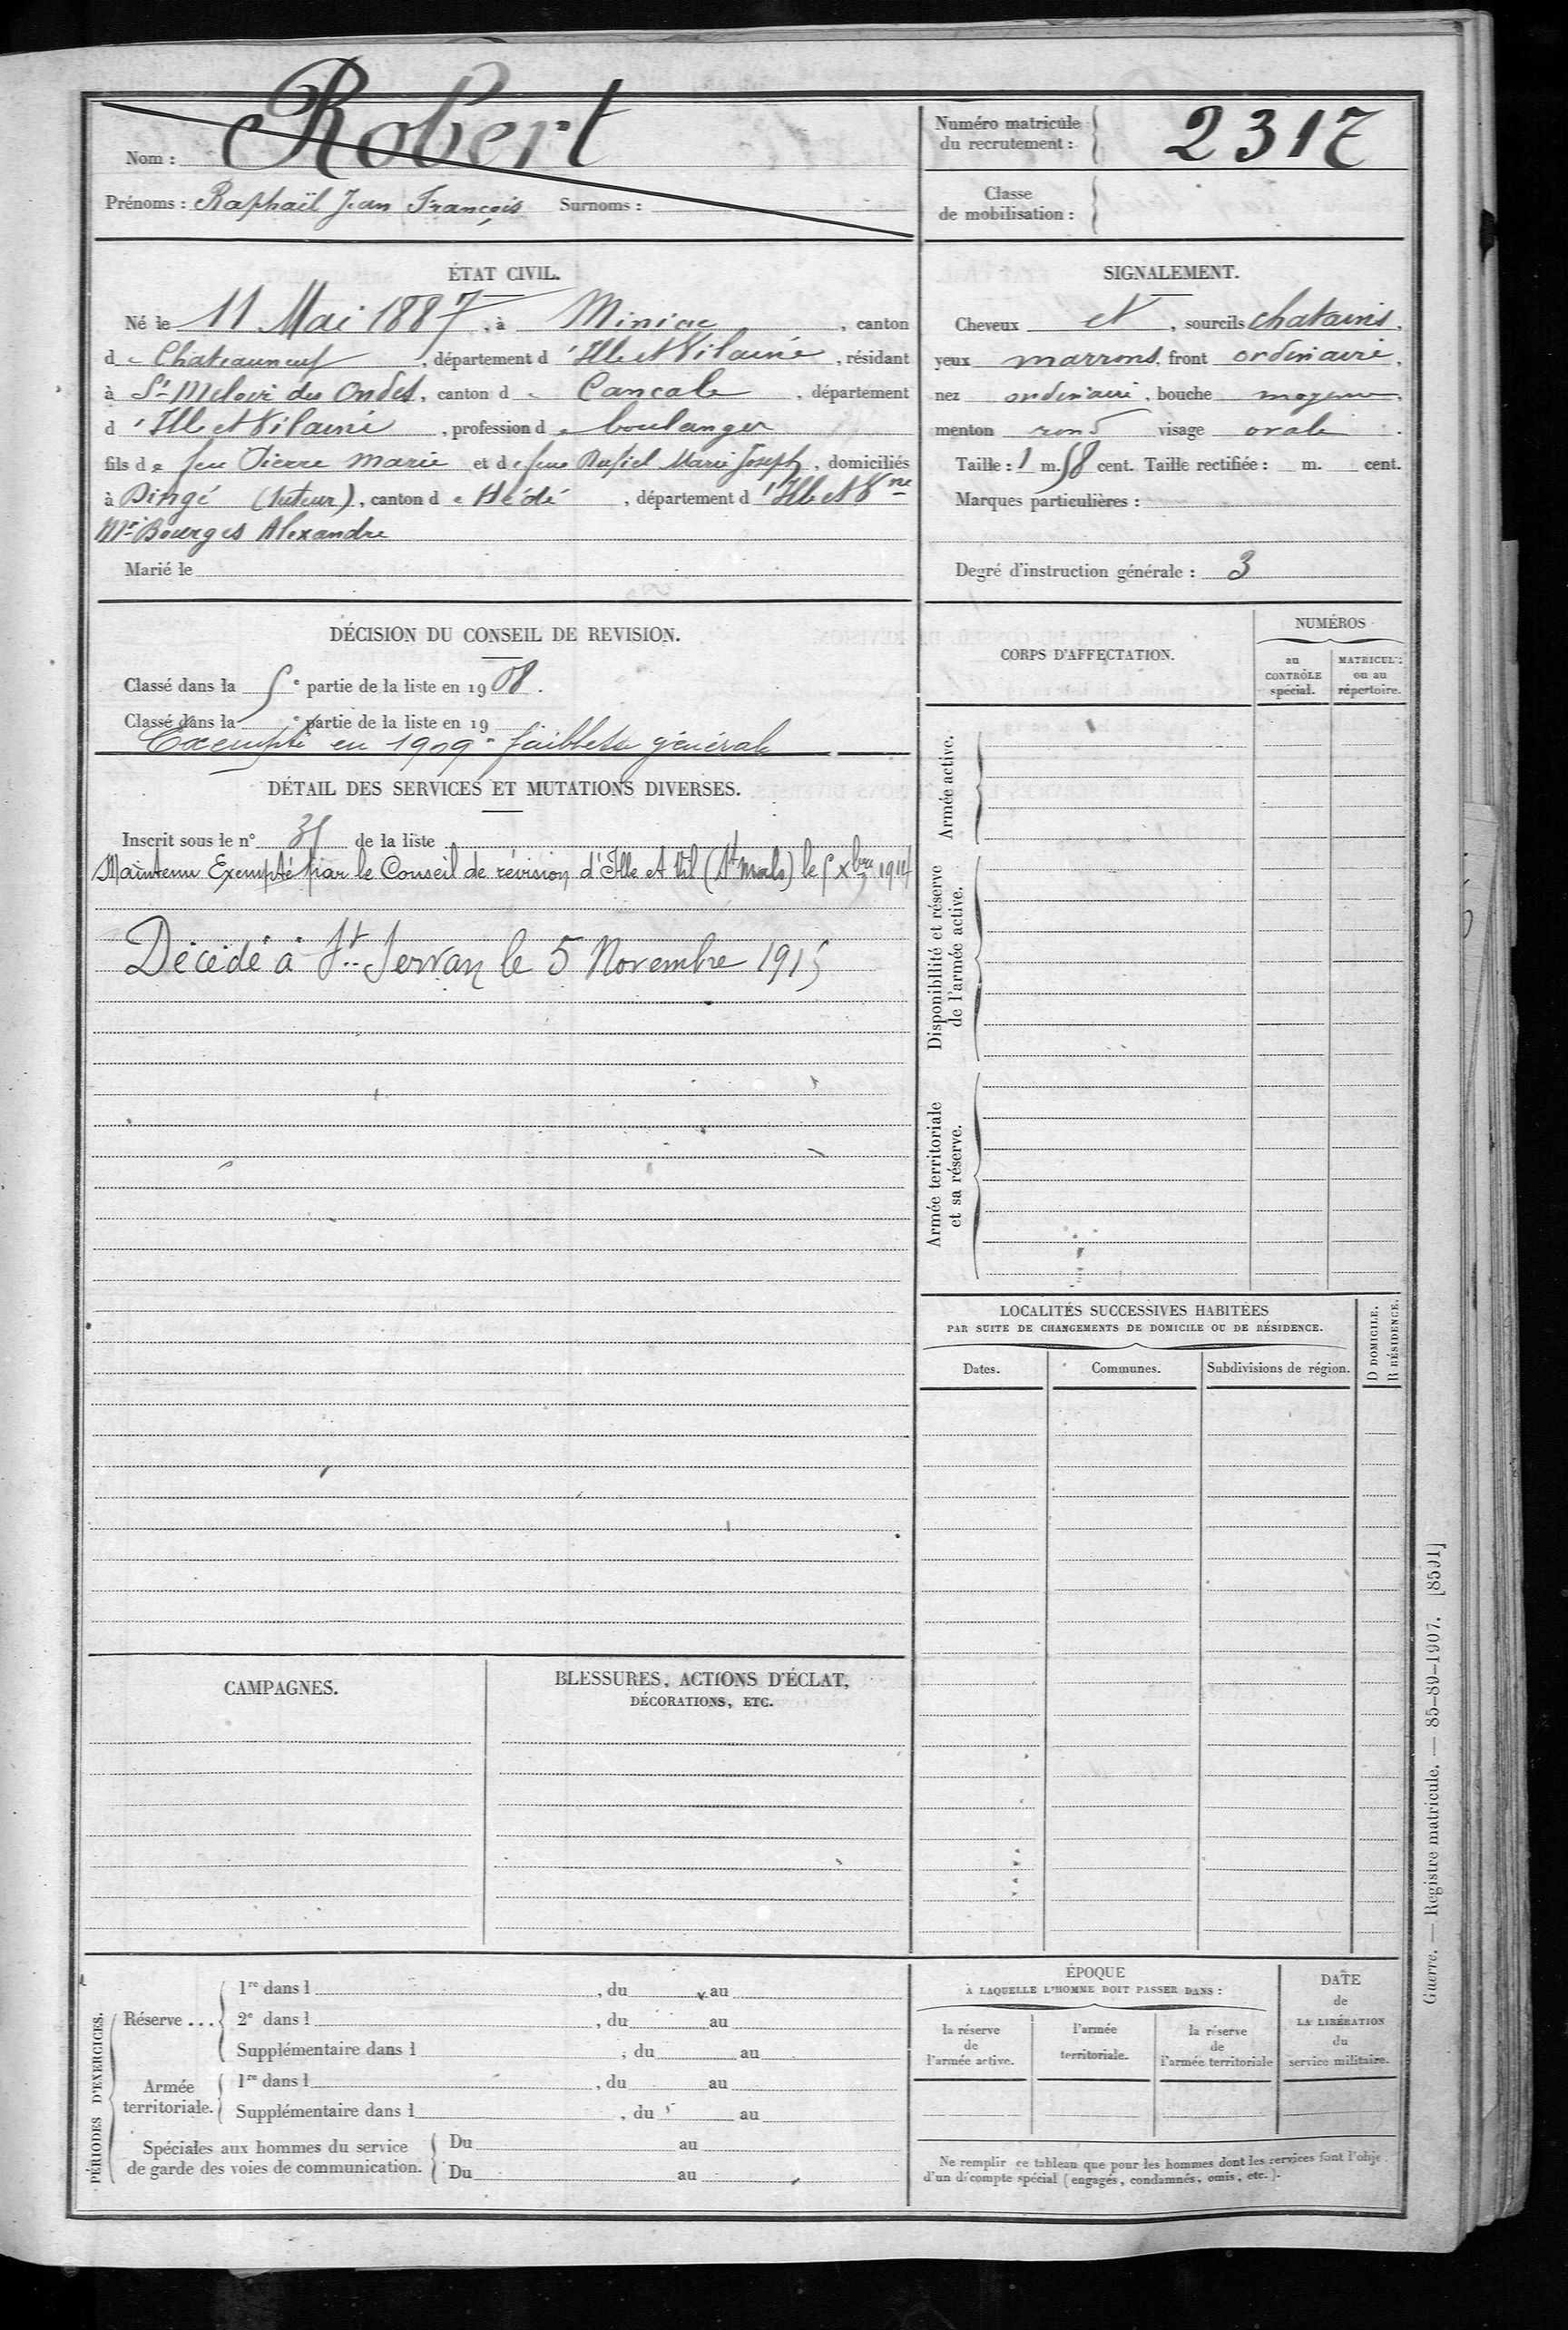 Nom : Robert
Prénoms : Raphaïl Jean François Surnoms :
Numéro matricule du recrutement : 2317
Classe de mobilisation :
ÉTAT CIVIL.
Né le 11 Mai 1887, à Miniac, canton
de Chateauneuf, département d'Ille et Vilaine, résidant
à St Meloir des Ondes, canton de Cancale, département
d'Ille et Vilaine, profession de boulanger
fils de feu Pierre Marie et de feue Rufiel Marie Joseph, domiciliés
à Dingé (tuteur), canton de Hédé, département d'Ille et Vne
Mr Bourges Alexandre
Marié le
SIGNALEMENT.
Cheveux et, sourcils chatains,
yeux marrons, front ordinaire,
nez ordinaire, bouche moyenne,
menton rond visage ovale.
Taille : 1 m. 58 cent. Taille rectifiée : m. cent.
Marques particulières :
Degré d'instruction générale : 3
DÉCISION DU CONSEIL DE REVISION.
Classé dans la 5e partie de la liste en 1908.
Classé dans la e partie de la liste en 19
Exempté en 1909 - faiblesse générale
DÉTAIL DES SERVICES ET MUTATIONS DIVERSES.
Inscrit sous le n° 35 de la liste
Maintenu Exempté par le Conseil de révision d'Ille et Vil (St Malo) le 5 Xbre 1914
Décédé à St. Servan le 5 Novembre 1915
CORPS D'AFFECTATION.
NUMÉROS
au CONTRÔLE spécial.
MATRICULE ou au répertoire.
Armée active.
Disponibilité et réserve de l'armée active.
Armée territoriale et sa réserve.
LOCALITÉS SUCCESSIVES HABITÉES
PAR SUITE DE CHANGEMENTS DE DOMICILE OU DE RÉSIDENCE.
Dates. Communes. Subdivisions de région.
D DOMICILE.
R RÉSIDENCE.
CAMPAGNES.
BLESSURES, ACTIONS D'ÉCLAT,
DÉCORATIONS, ETC.
PÉRIODES D'EXERCICES.
Réserve ...
1re dans l , du au
2e dans l , du au
Supplémentaire dans l , du au
Armée territoriale.
1re dans l , du au
Supplémentaire dans l , du au
Spéciales aux hommes du service
de garde des voies de communication.
Du au
Du au
ÉPOQUE
À LAQUELLE L'HOMME DOIT PASSER DANS :
la réserve de l'armée active.
l'armée territoriale.
la réserve de l'armée territoriale
DATE
de
LA LIBÉRATION
du
service militaire.
Ne remplir ce tableau que pour les hommes dont les services font l'obje
d'un décompte spécial (engagés, condamnés, omis, etc.).
Guerre. — Registre matricule. — 85-89-1907. [8591]